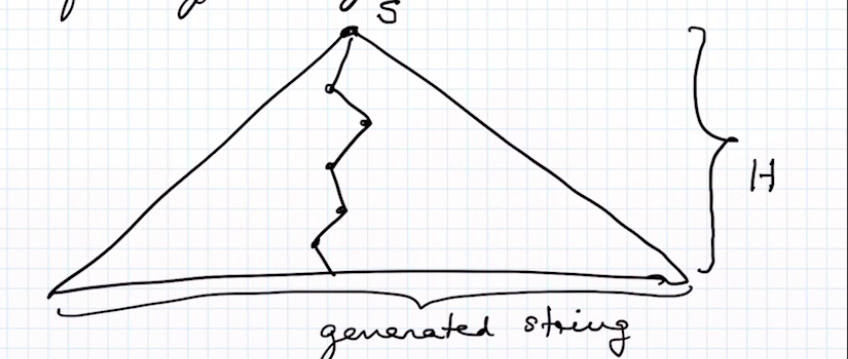 S
H
generated string